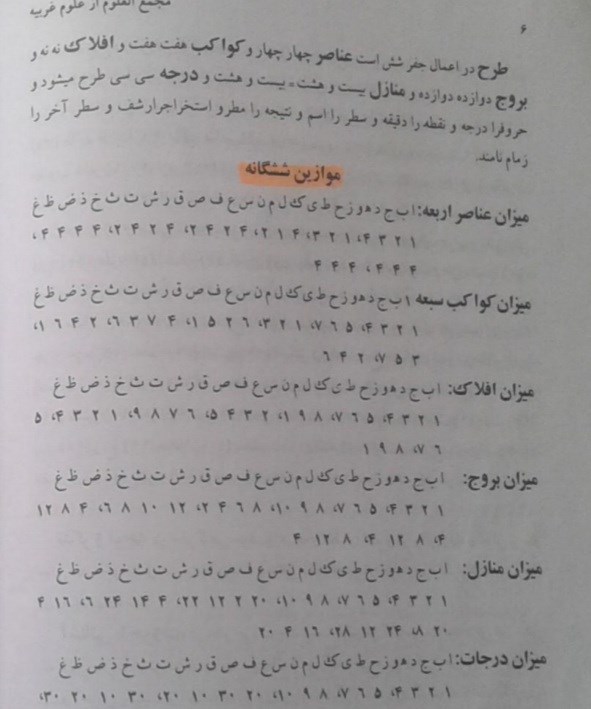 مجمع العلوم از علوم غریبه
۶
طرح در اعمال جفر شش است عناصر چهار چهار و کواکب هفت هفت و افلاک نه نه و
بروج دوازده دوازده و منازل بیست و هشت بیست و هشت و درجه سی سی طرح میشود و
حروفرا درجه و نقطه را دقیقه و سطر را اسم و نتیجه را مطر و استخراجرا رشف و سطر آخر را
زمام نامند.
موازین ششگانه
میزان عناصر اربعه: ا ب ج د ه و ز ح ط ی ک ل م ن س ع ف ص ق ر ش ت ث خ ذ ض ظ غ
۱ ۲ ۳ ۴، ۱ ۲ ۳، ۴ ۱ ۲، ۴ ۲ ۴ ۲، ۴ ۲ ۴ ۲، ۴ ۴ ۴ ۴،
۴ ۴ ۴، ۴ ۴ ۴
میزان کواکب سبعه ا ب ج د ه و ز ح ط ی ک ل م ن س ع ف ص ق ر ش ت ث خ ذ ض ظ غ
۱ ۲ ۳ ۴، ۵ ۶ ۷، ۱ ۲ ۳، ۶ ۲ ۵ ۱، ۴ ۷ ۳ ۶، ۲ ۶ ۴ ۱،
۳ ۵ ۷، ۲ ۴ ۶
میزان افلاک: ا ب ج د ه و ز ح ط ی ک ل م ن س ع ف ص ق ر ش ت ث خ ذ ض ظ غ
۱ ۲ ۳ ۴، ۵ ۶ ۷، ۸ ۹ ۱، ۲ ۳ ۴ ۵، ۶ ۷ ۸ ۹، ۱ ۲ ۳ ۴، ۵
۶ ۷، ۸ ۹ ۱
میزان بروج: ا ب ج د ه و ز ح ط ی ک ل م ن س ع ف ص ق ر ش ت ث خ ذ ض ظ غ
۱ ۲ ۳ ۴، ۵ ۶ ۷، ۸ ۹ ۱۰، ۸ ۶ ۴ ۲، ۱۲ ۱۰ ۸ ۶، ۴ ۸ ۱۲
۴، ۸ ۱۲ ۴، ۸ ۱۲ ۴
میزان منازل: ا ب ج د ه و ز ح ط ی ک ل م ن س ع ف ص ق ر ش ت ث خ ذ ض ظ غ
۱ ۲ ۳ ۴، ۵ ۶ ۷، ۸ ۹ ۱۰، ۲۰ ۲ ۱۲ ۲۲، ۴ ۱۴ ۲۴ ۶، ۱۶ ۴
۲۰ ۸، ۲۴ ۱۲ ۲۸، ۱۶ ۴ ۲۰
میزان درجات: ا ب ج د ه و ز ح ط ی ک ل م ن س ع ف ص ق ر ش ت ث خ ذ ض ظ غ
۱ ۲ ۳ ۴، ۵ ۶ ۷، ۸ ۹ ۱۰، ۲۰ ۳۰ ۱۰ ۲۰، ۳۰ ۱۰ ۲۰ ۳۰،